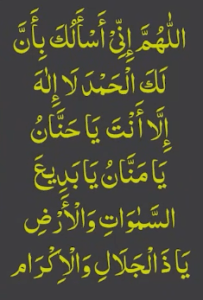 اللّٰهُمَّ إِنِّيْ أَسْأَلُكَ بِأَنَّ
لَكَ الْحَمْدَ لَا إِلٰهَ
إِلَّا أَنْتَ يَا حَنَّانُ
يَا مَنَّانُ يَا بَدِيعَ
السَّمٰوَاتِ وَالْأَرْضِ
يَا ذَالْجَلَالِ وَالْإِكْرَام